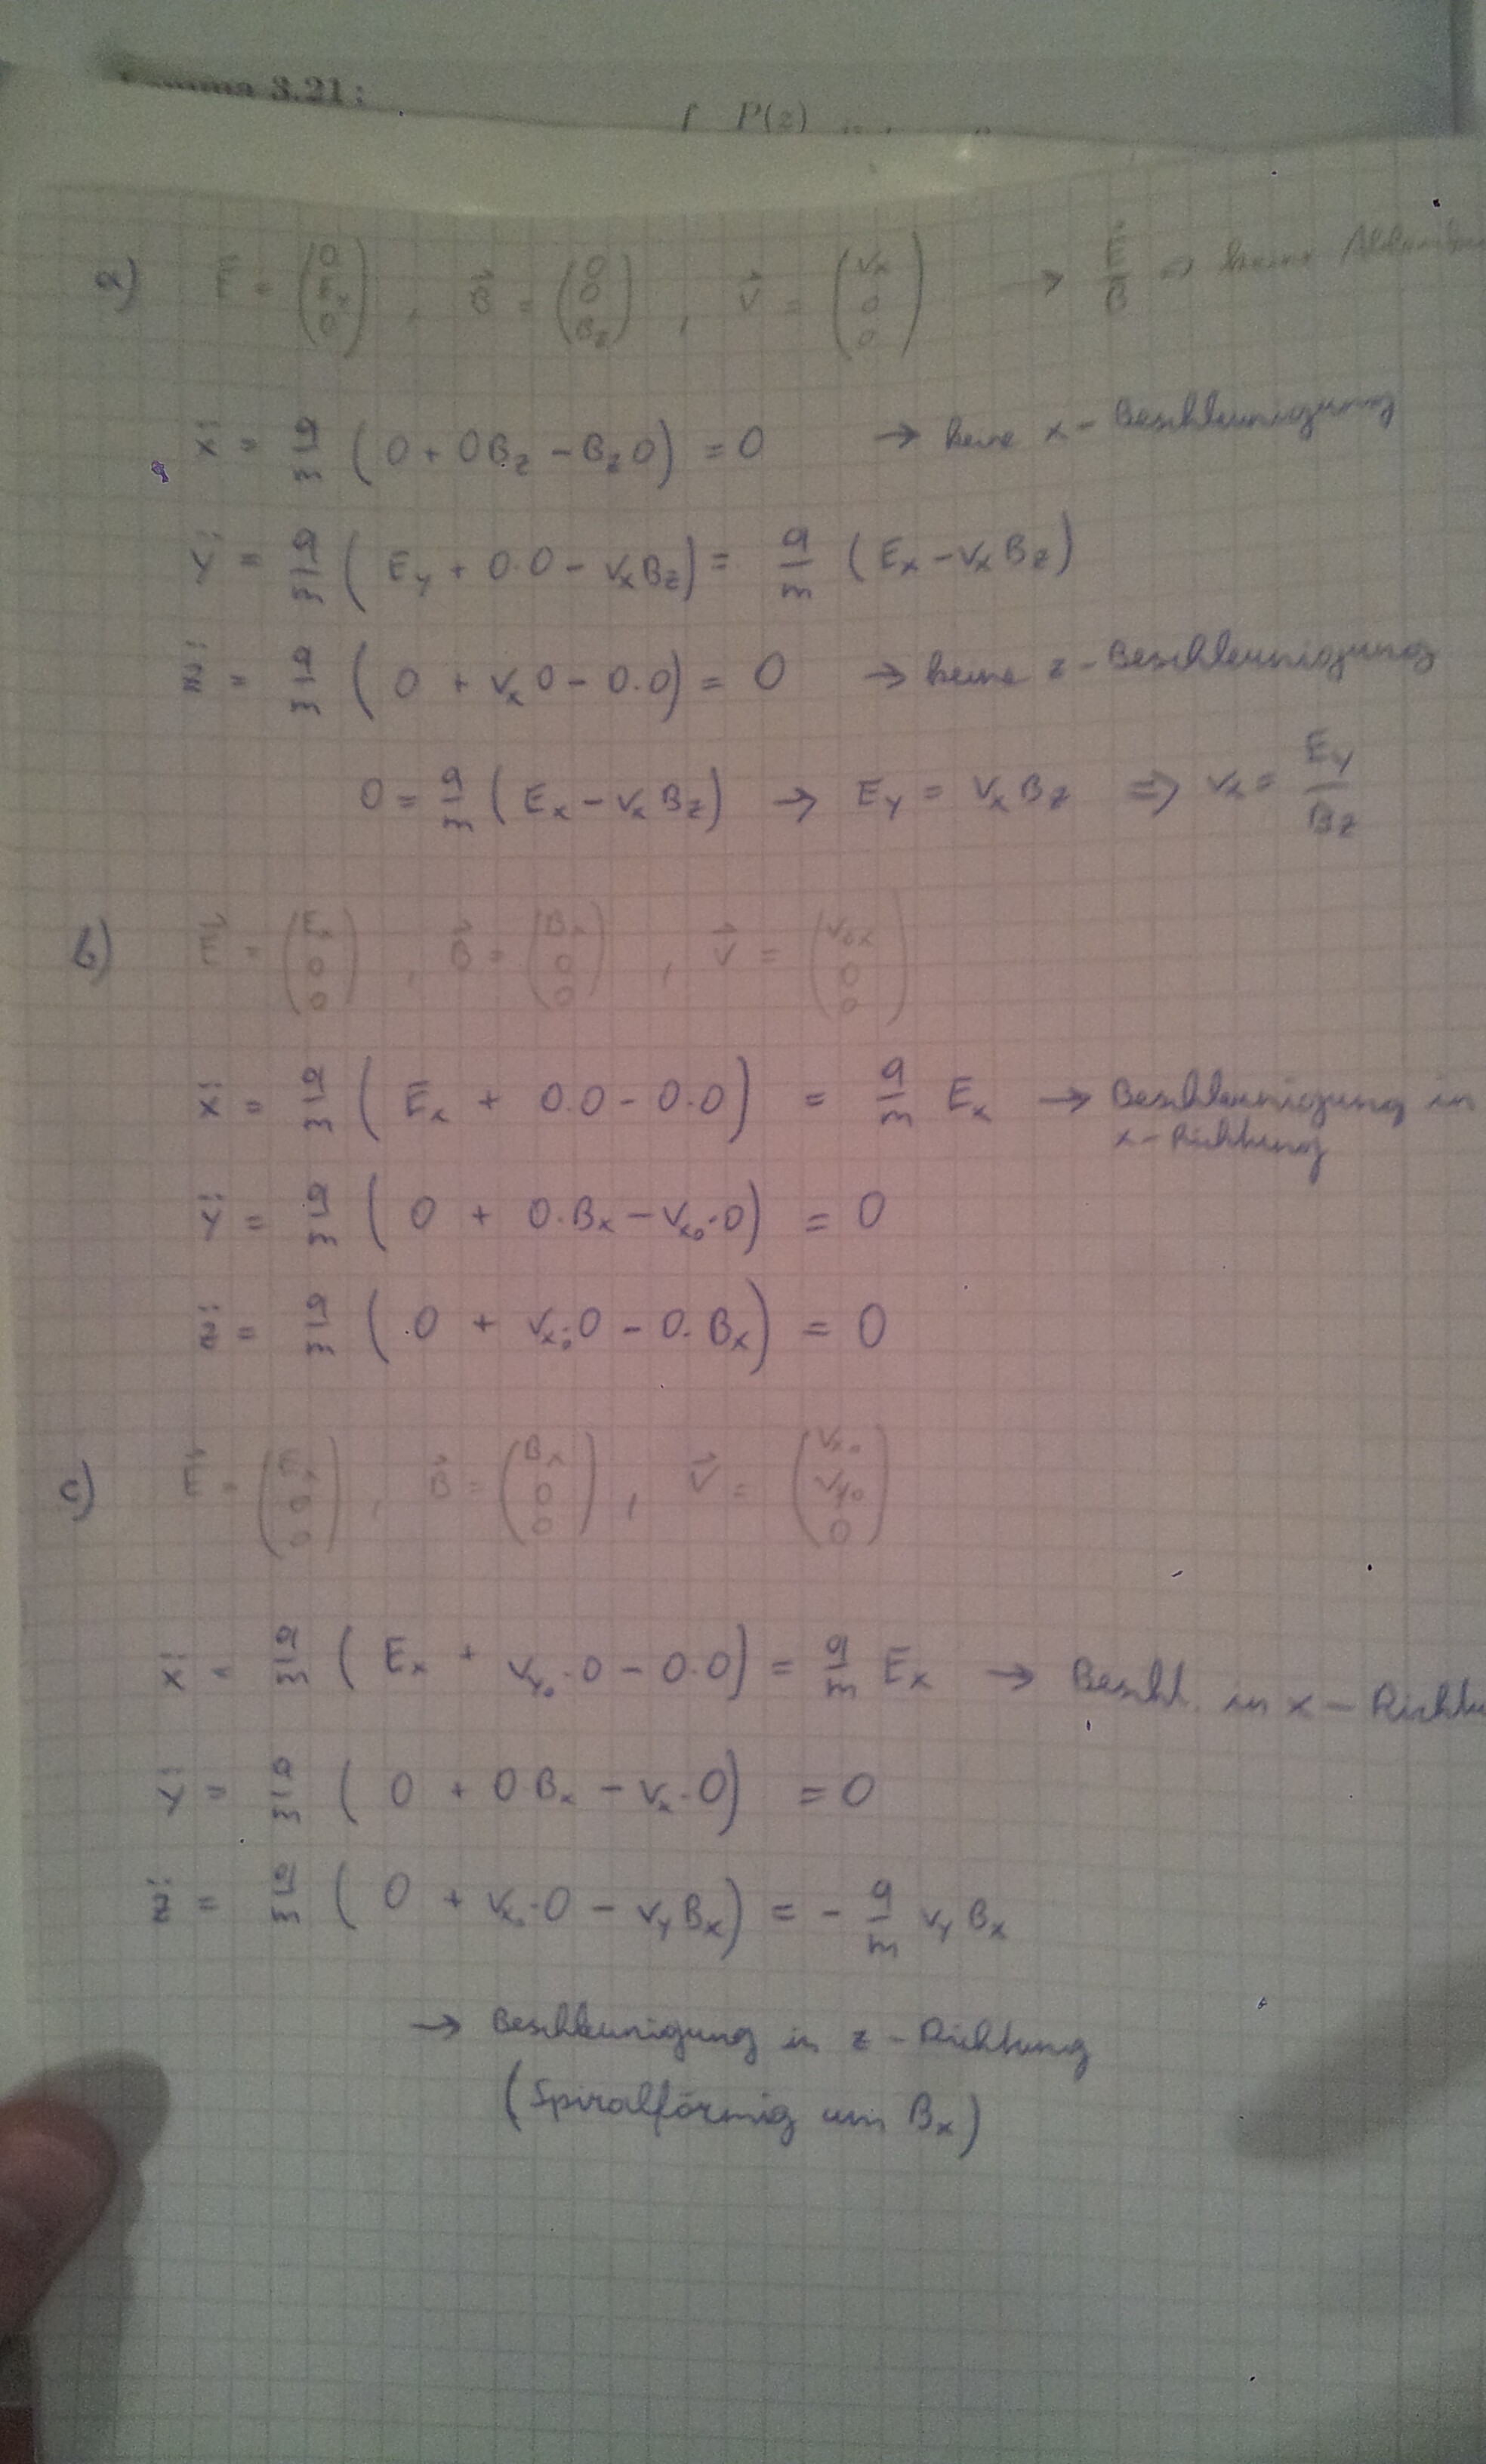 3.21:
P(z)
a) E⃗ = (0 E_y 0), B⃗ = (0 0 B_z), v⃗ = (v_x 0 0) → E/B ⇒ keine
ẍ = q/m (0 + 0B_z − B_z0) = 0 → keine x-Beschleunigung
ÿ = q/m (E_y + 0·0 − v_xB_z) = q/m (E_x − v_xB_z)
z̈ = q/m (0 + v_x0 − 0·0) = 0 → keine z-Beschleunigung
0 = q/m (E_x − v_xB_z) → E_y = v_xB_z ⇒ v_x = E_y/B_z
b) E⃗ = (E_x 0 0), B⃗ = (B_x 0 0), v⃗ = (v_0x 0 0)
ẍ = q/m (E_x + 0·0 − 0·0) = q/m E_x → Beschleunigung in
x-Richtung
ÿ = q/m (0 + 0·B_x − v_x0·0) = 0
z̈ = q/m (0 + v_x0·0 − 0·B_x) = 0
c) E⃗ = (E_x 0 0), B⃗ = (B_x 0 0), v⃗ = (v_x0 v_y0 0)
ẍ = q/m (E_x + v_y0·0 − 0·0) = q/m E_x → Beschl. in x-Richtu
ÿ = q/m (0 + 0B_x − v_x·0) = 0
z̈ = q/m (0 + v_x0·0 − v_yB_x) = − q/m v_yB_x
→ Beschleunigung in z-Richtung
(Spiralförmig um B_x)